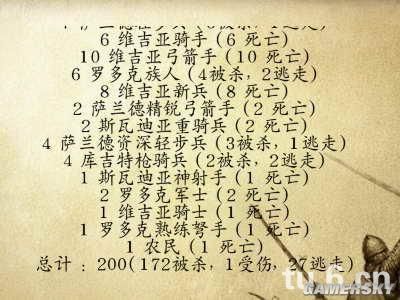 6 维吉亚骑手（6 死亡）
10 维吉亚弓箭手（10 死亡）
6 罗多克族人（4被杀，2逃走）
8 维吉亚新兵（8 死亡）
2 萨兰德精锐弓箭手（2 死亡）
2 斯瓦迪亚重骑兵（2 死亡）
4 萨兰德资深轻步兵（3被杀，1逃走）
4 库吉特枪骑兵（2被杀，2逃走）
1 斯瓦迪亚神射手（1 死亡）
2 罗多克军士（2 死亡）
1 维吉亚骑士（1 死亡）
1 罗多克熟练弩手（1 死亡）
1 农民（1 死亡）
总计：200(172被杀，1受伤，27逃走)
tu.6.cn
GAMERSKY